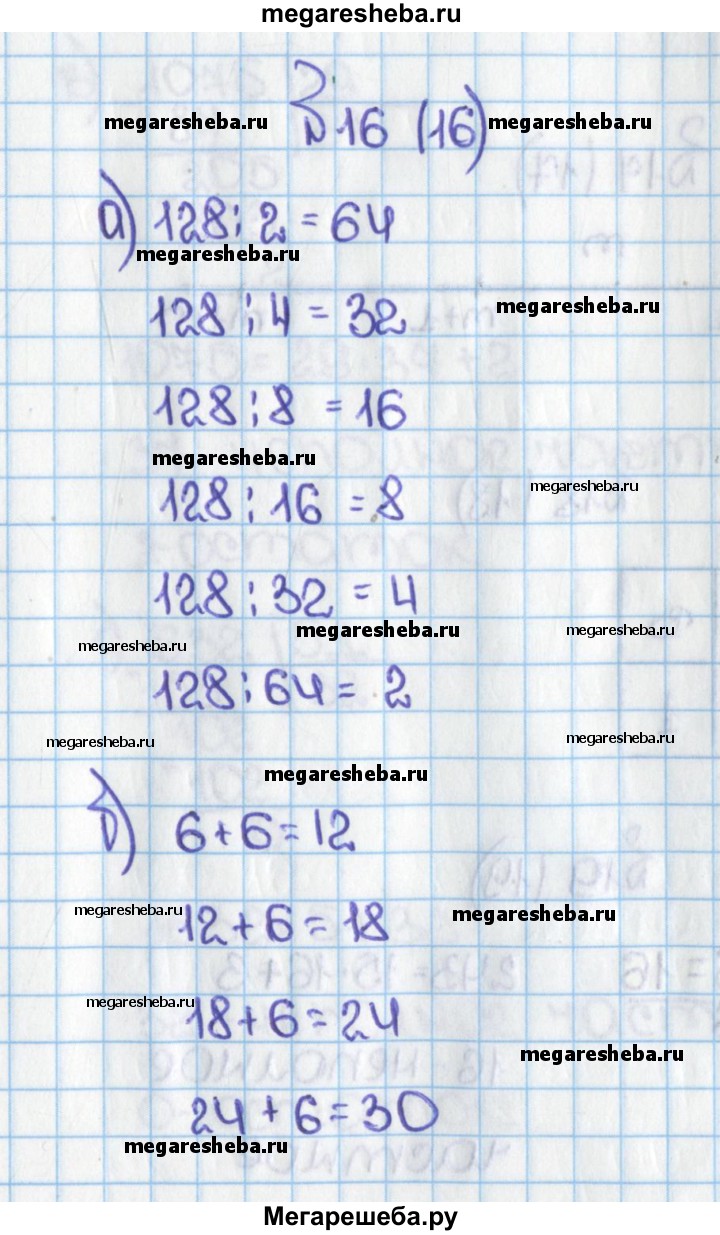 megaresheba.ru
б
N 16 (16)
megaresheba.ru megaresheba.ru
а) 128 : 2 = 64
megaresheba.ru
128 : 4 = 32
megaresheba.ru
128 : 8 = 16
megaresheba.ru
megaresheba.ru
128 : 16 = 8
128 : 32 = 4
megaresheba.ru megaresheba.ru
megaresheba.ru
128 : 64 = 2
megaresheba.ru megaresheba.ru
megaresheba.ru
б) 6 + 6 = 12
megaresheba.ru megaresheba.ru
12 + 6 = 18
megaresheba.ru
18 + 6 = 24
megaresheba.ru
24 + 6 = 30
megaresheba.ru
Мегарешеба.ру